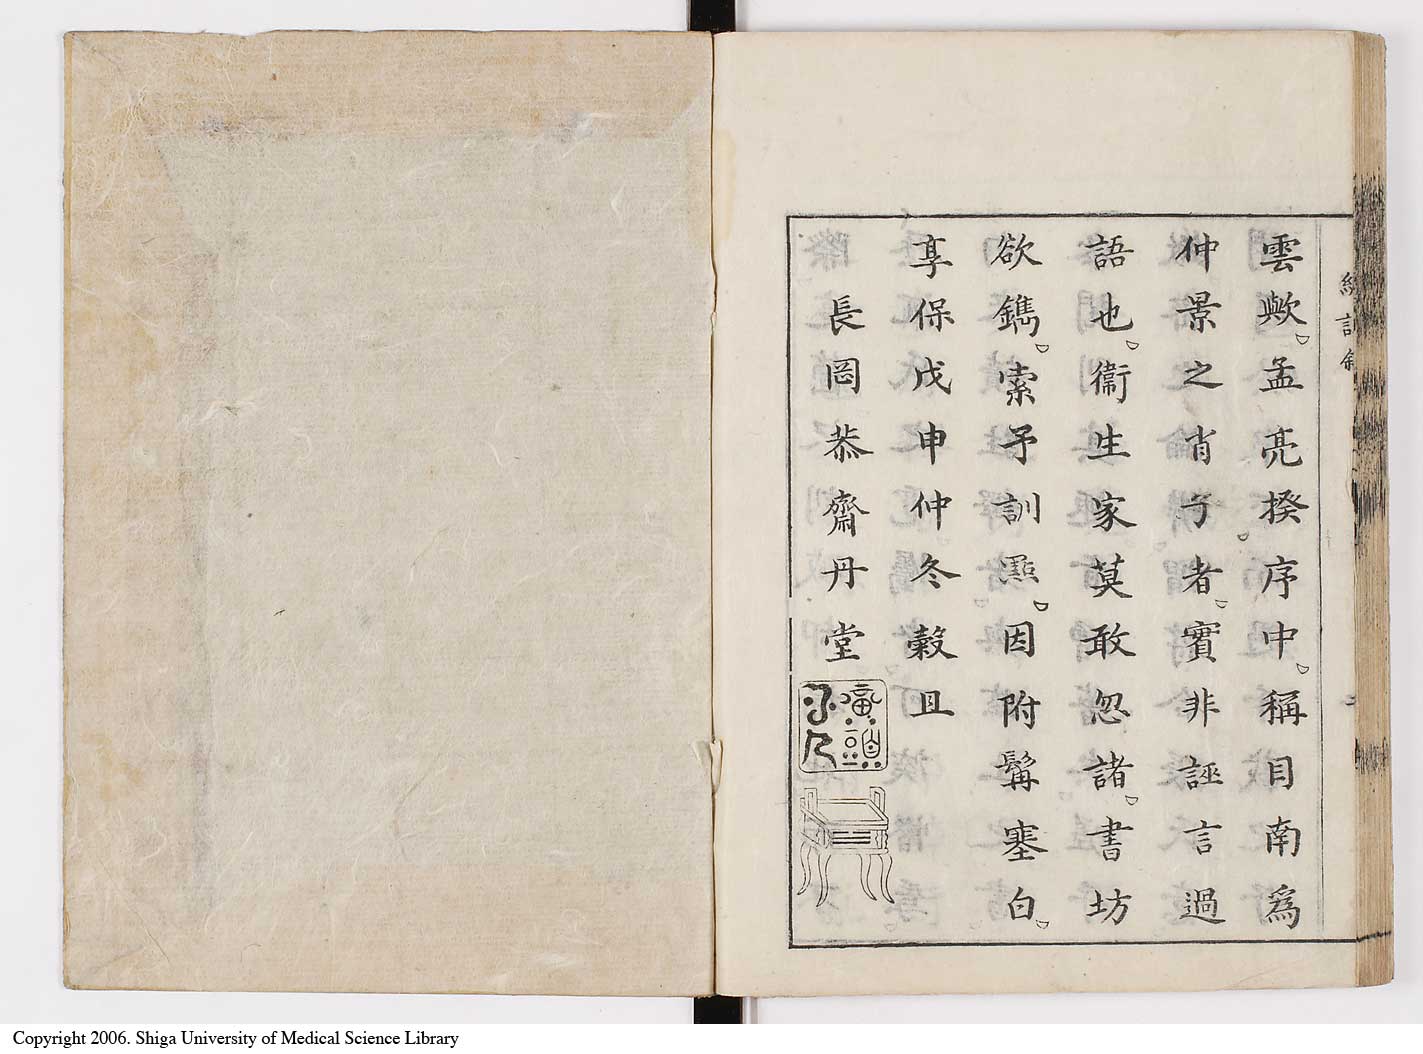 雲歟孟亮揆序中稱目南爲
仲景之肖子者實非誣言過
語也衞生家莫敢忽諸書坊
欲鐫索予訓點因附髯塞白
享保戊申仲冬穀且
長岡恭齋丹堂
Copyright 2006. Shiga University of Medical Science Library